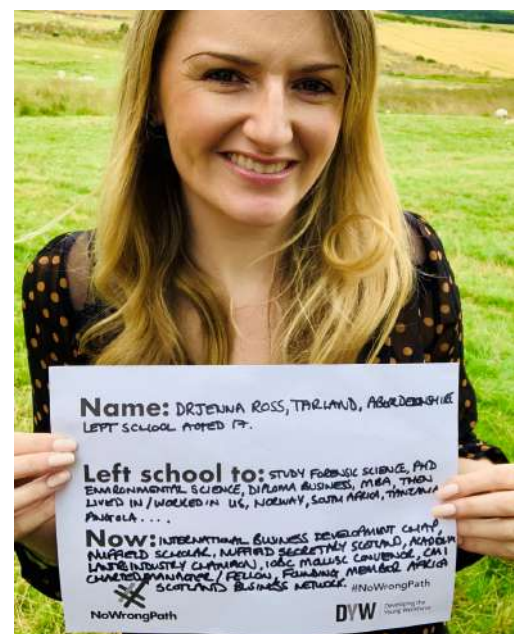 Name: DR JENNA ROSS, TARLAND, ABERDEENSHIRE
LEFT SCHOOL AGED 17.
Left school to: STUDY FORENSIC SCIENCE, PHD
ENVIRONMENTAL SCIENCE, DIPLOMA BUSINESS, MBA, THEN
LIVED IN / WORKED IN US, NORWAY, SOUTH AFRICA, TANZANIA
ANGOLA....
Now: INTERNATIONAL BUSINESS DEVELOPMENT
NUFFIELD SCHOLAR, NUFFIELD SECRETARY SCOTLAND,
INDUSTRY CHAMPION, IOBC MOLLUSC CONVENOR, CMI
CHARTERED MANAGER / FELLOW, FOUNDING MEMBER AFRICA
SCOTLAND BUSINESS NETWORK. #NoWrongPath
NoWrongPath
DYW Developing the
Young Workforce